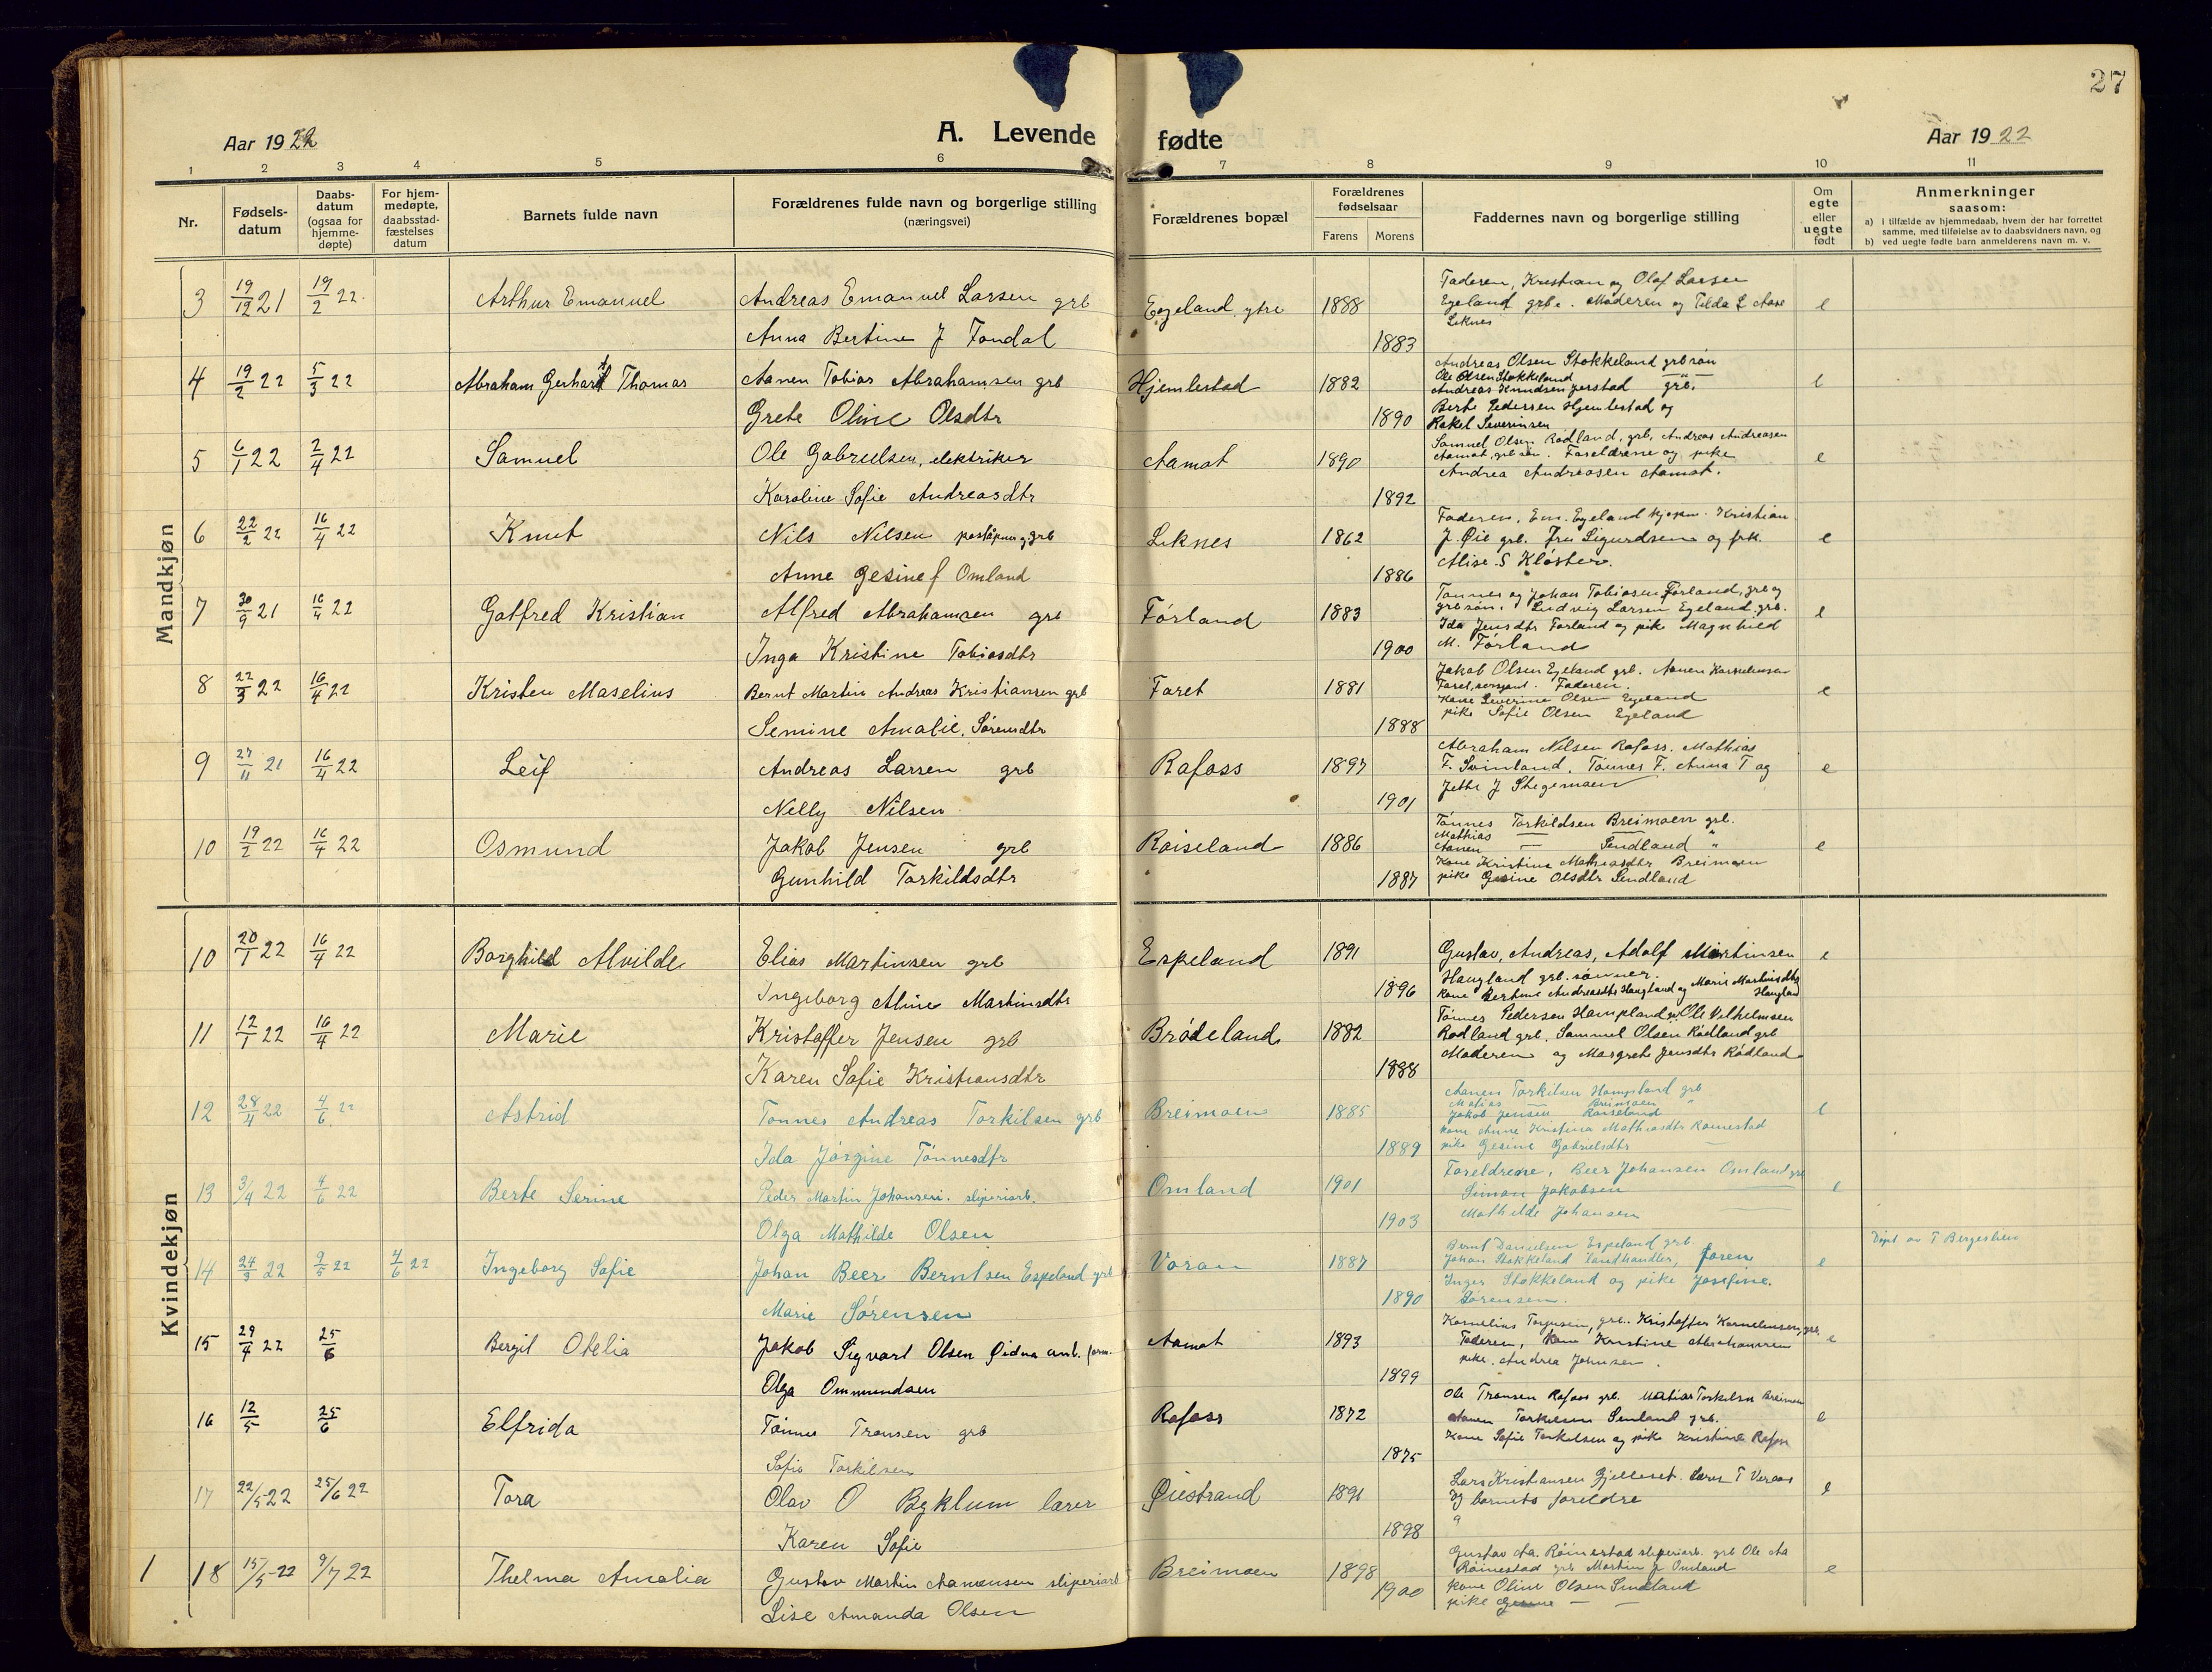 27
Aar 1922
A. Levende fødte
Aar 1922
1 2 3 4 5 6 7 8 9 10 11
Nr.
Fødsels-
datum
Daabs-
datum
(ogsaa for
hjemme-
døpte)
For hjem-
medøpte,
daabsstad-
fæstelses
datum
Barnets fulde navn
Forældrenes fulde navn og borgerlige stilling
(næringsvei)
Forældrenes bopæl
Forældrenes
fødselsaar
Farens Morens
Faddernes navn og borgerlige stilling
Om
egte
eller
uegte
født
Anmerkninger
saasom:
a) i tilfælde av hjemmedaab, hvem der har forrettet
samme, med tilføielse av to daabsvidners navn, og
b) ved uegte fødte barn anmelderens navn m. v.
Mandkjøn
3 19/12 21 19/2 22. Arthur Emanuel Andreas Emanuel Larsen grb Egeland, ytre 1888 e
Anna Bertine J Fondal 1883
Faderen, Kristian og Olaf Larsen
Egeland grb. Moderen og Tilda L Aase
Leknes
4 19/2 22 5/3 22 Abraham Gerhart Thomas Aanen Tobias Abrahamsen grb Hjemlestad 1882 e
Grete Oline Olsdtr 1890
Andreas Olsen Stokkeland grbsøn
Ole Olsen Stokkeland
Andreas Knudsen Jerstad grb.
Berte Pedersen Hjemlestad og
Rakel Severinsen
5 6/1 22 2/4 22 Samuel Ole Gabrielsen, elektriker Aamot 1890 e
Karoline Sofie Andreasdtr 1892
Samuel Olsen Rødland, grb, Andreas Andreasen
Aamot, grb.søn. Foreldrene og pike
Andrea Andreasen Aamot.
6 22/2 22 16/4 22 Knut Nils Nilsen postaapner, grb Leknes 1862 e
Anne Gesine J Omland 1886
Faderen, Em. Egeland kjøpm. Kristian
J. Øie grb. Fru Sigurdsen og frk.
Alise S Kloster.
7 30/9 21 16/4 22 Gotfred Kristian Alfred Abrahamsen grb Førland 1883 e
Inga Kristine Tobiasdtr 1900
Tønnes og Johan Tobiasen Førland, grb og
grb søn. Ludvig Larsen Egeland, grb.
Ida Jensdtr Førland og pike Magnhild
M. Førland
8 22/3 22 16/4 22 Kristen Maselius Bernt Martin Andreas Kristiansen grb Faret 1881 e
Semine Amalie Sørensdtr 1888
Jakob Olsen Egeland grb. Aanen Karneliussen
Faret, sersjant. Faderen.
Kone Severine Olsen Egeland
pike Sofie Olsen Egeland
9 27/11 21 16/4 22 Leif Andreas Larsen grb Rafoss 1897 e
Nelly Nilsen 1901
Abraham Nilsen Rafoss. Mathias
F. Svinland, Tønnes F. Anna T og
Jethe J Stegemoen
10 19/2 22 16/4 22 Osmund Jakob Jensen grb Røiseland 1886 e
Gunhild Torkildsdtr 1887
Tønnes Torkildsen Breimoen grb.
Mathias — —
Aanen — Sindland "
Kone Kristine Mathiasdtr Breimoen
pike Gesine Olsdtr Sindland
Kvindekjøn
10 20/1 22 16/4 22 Borghild Alvilde Elias Martinsen grb Espeland 1891 e
Ingeborg Aline Martinsdtr 1896
Gustav, Andreas, Adolf Martinsen
Haugland grb. sønner.
kone Bertine Andreasdtr Haugland og Marie Martinsdtr
Haugland
11 12/1 22 16/4 22 Marie Kristoffer Jensen grb Brødeland 1882
Karen Sofie Kristiansdtr 1888
Tønnes Pedersen Hampland, Ole Vilhelmsen
Rødland grb. Sammel Olsen Rødland grb
Moderen og Margrete Jensdtr Rødland
12 28/4 22 4/6 22 Astrid Tønnes Andreas Torkilsen grb Breimoen 1885 e
Ida Jørgine Tønnesdtr 1889
Aanen Torkilsen Hampland grb
Matias — Breimoen "
Jakob Jensen Røiseland
kone Anne Kristine Mathiasdtr Rømestad
pike Gesine Gabrielsdtr —
13 3/4 22 4/6 22 Berte Serine Peder Martin Johansen. sliperiarb. Omland 1901 e
Olga Mathilde Olsen 1903
Foreldrene, Beer Johansen Omland grb
Simon Jakobsen —
Mathilde Johansen —
14 24/3 22 9/5 22 4/6 22 Ingeborg Sofie Johan Beer Berntsen Espeland grb Voran 1887 e
Marie Sørensen 1890
Bernt Danielsen Espeland grb.
Johan Stokkeland landhandler, Faren
Inger Stokkeland og pike Josefine.
Sørensen.
Døpt av T Bergeslien
15 29/4 22 25/6 Bergit Otelia Jakob Sigvart Olsen Øidna anl. form. Aamot 1893 e
Olga Ommundsen 1899
Kornelius Torjusen, grb. Kristoffer Korneliussen, grb,
Faderen, kone Kristine Abrahamsen
pike. Andrea Johnsen.
16 12/5 25/6 Elfrida Tønnes Tronsen grb Rafoss 1872 e
Sofie Torkilsen 1875
Ole Tronsen Rafoss grb. Matias Torkilsen Breimoen
Aanen Torkilsen Sinland grb.
Kone Sofie Torkelsen og pike Kristine Rafoss
17 22/5 22 25/6 22 Tora Olav O Byklum lærer Øiestrand 1891 e
Karen Sofie 1898
Lars Kristiansen Gjelleset. lærer T Veraas
og barnets foreldre
1 18 15/5 22 9/7 22 Thelma Amalia Gustav Martin Aamonsen sliperiarb Breimoen 1898 e
Lise Amanda Olsen 1900
Gustav Aa. Rømestad sliperiarb. grb Ole Aa
Rømestad grb Martin J Omland
kone Oline Olsen Sindland
pike Gesine — —